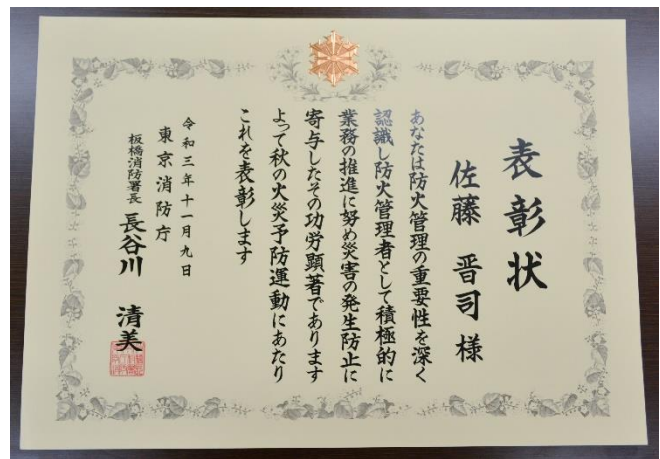 表彰状
佐藤 晋司 様
あなたは防火管理の重要性を深く
認識し防火管理者として積極的に
業務の推進に努め災害の発生防止に
寄与したその功労顕著であります
よって秋の火災予防運動にあたり
これを表彰します
令和三年十一月九日
東京消防庁
板橋消防署長 長谷川 清美